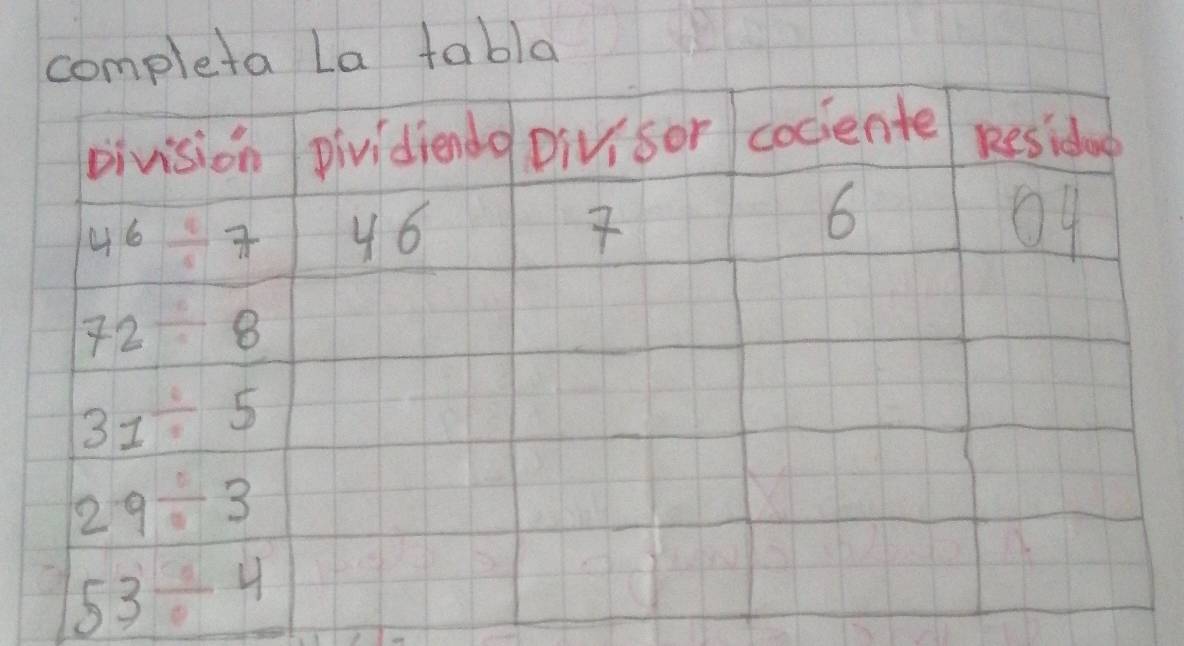 completa La tabla
División Dividiendo Divisor cociente Residuo
46 ÷ 7 46 7 6 04
72 ÷ 8
31 ÷ 5
29 ÷ 3
53 ÷ 4